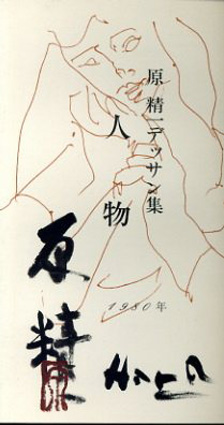 原精一デッサン集
人物
1980年
原精
Hara